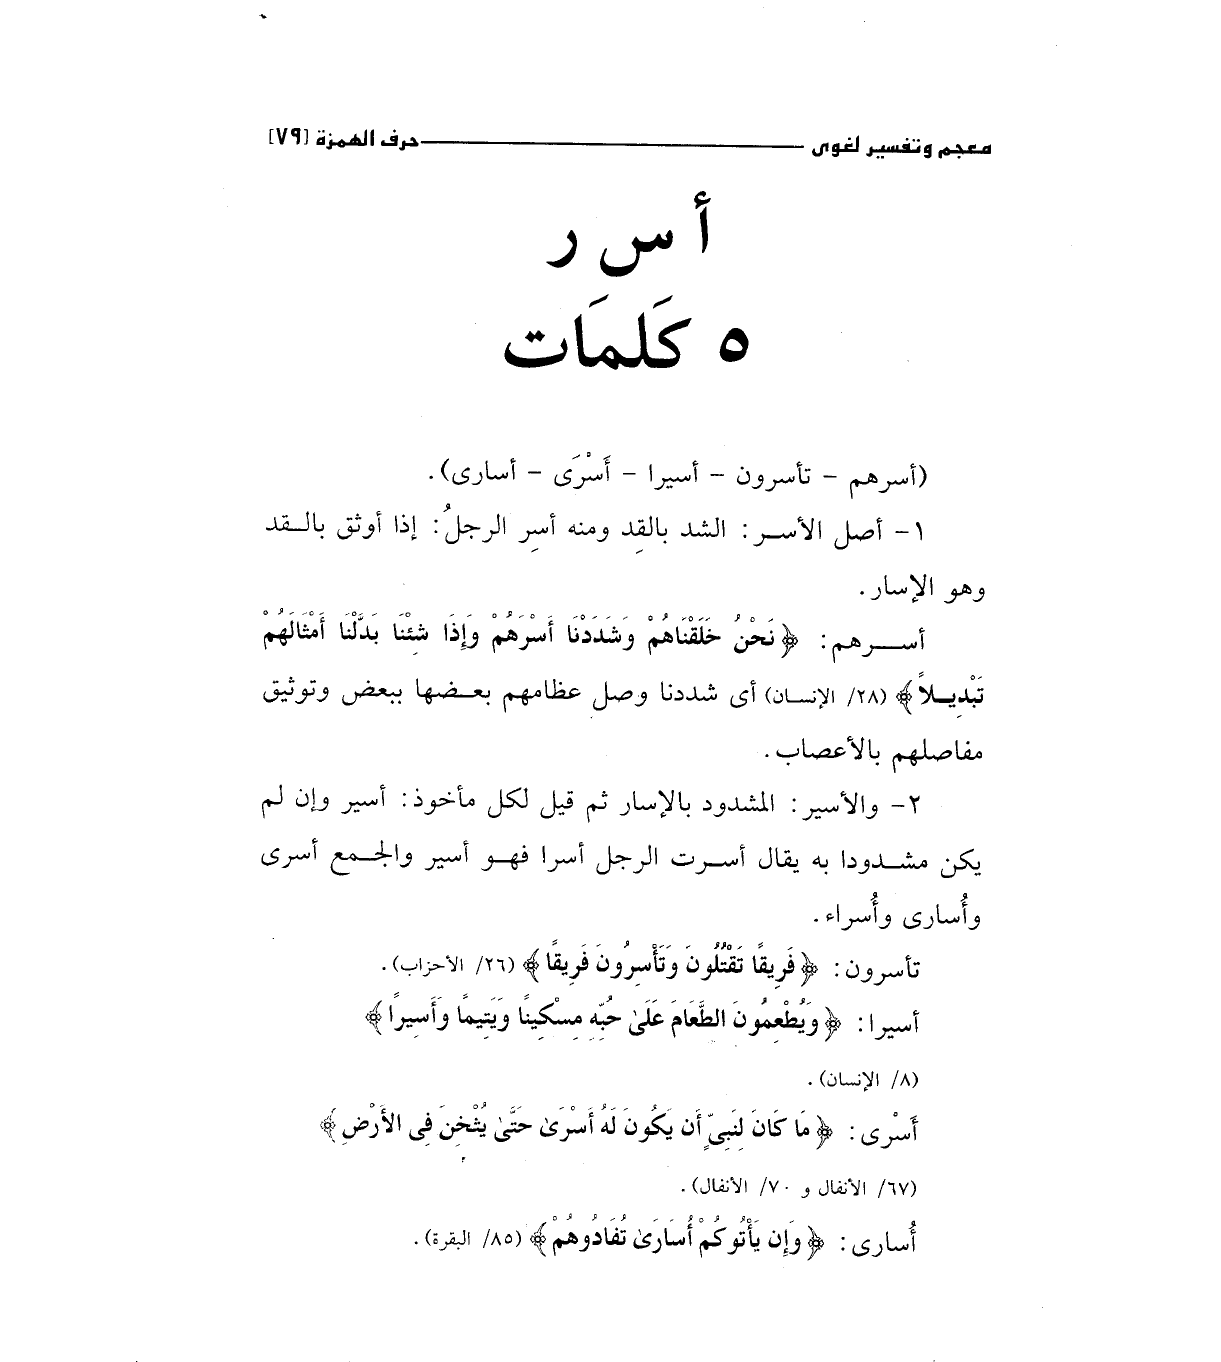 معجم وتفسير لغوى حرف الهمزة [٧٩]
أ س ر
٥ كَلمَات
(أسرهم – تأسرون – أسيرا – أَسْرَى – أسارى).
١- أصل الأسر: الشد بالقِد ومنه أسِر الرجلُ: إذا أوثق بالقد
وهو الإسار.
أسرهم: ﴿نَحْنُ خَلَقْنَاهُمْ وَشَدَدْنَا أَسْرَهُمْ وَإِذَا شِئْنَا بَدَّلْنَا أَمْثَالَهُمْ
تَبْدِيلاً﴾ (٢٨/ الإنسان) أى شددنا وصل عظامهم بعضها ببعض وتوثيق
مفاصلهم بالأعصاب.
٢- والأسير: المشدود بالإسار ثم قيل لكل مأخوذ: أسير وإن لم
يكن مشدودا به يقال أسرت الرجل أسرا فهو أسير والجمع أسرى
وأُسارى وأُسراء.
تأسرون: ﴿فَرِيقًا تَقْتُلُونَ وَتَأْسِرُونَ فَرِيقًا﴾ (٢٦/ الأحزاب).
أسيرا: ﴿وَيُطْعِمُونَ الطَّعَامَ عَلَىٰ حُبِّهِ مِسْكِينًا وَيَتِيمًا وَأَسِيرًا﴾
(٨/ الإنسان).
أَسْرى: ﴿مَا كَانَ لِنَبِىٍّ أَن يَكُونَ لَهُ أَسْرَىٰ حَتَّىٰ يُثْخِنَ فِى الأَرْضِ﴾
(٦٧/ الأنفال و ٧٠/ الأنفال).
أُسارى: ﴿وَإِن يَأْتُوكُمْ أُسَارَىٰ تُفَادُوهُمْ﴾ (٨٥/ البقرة).